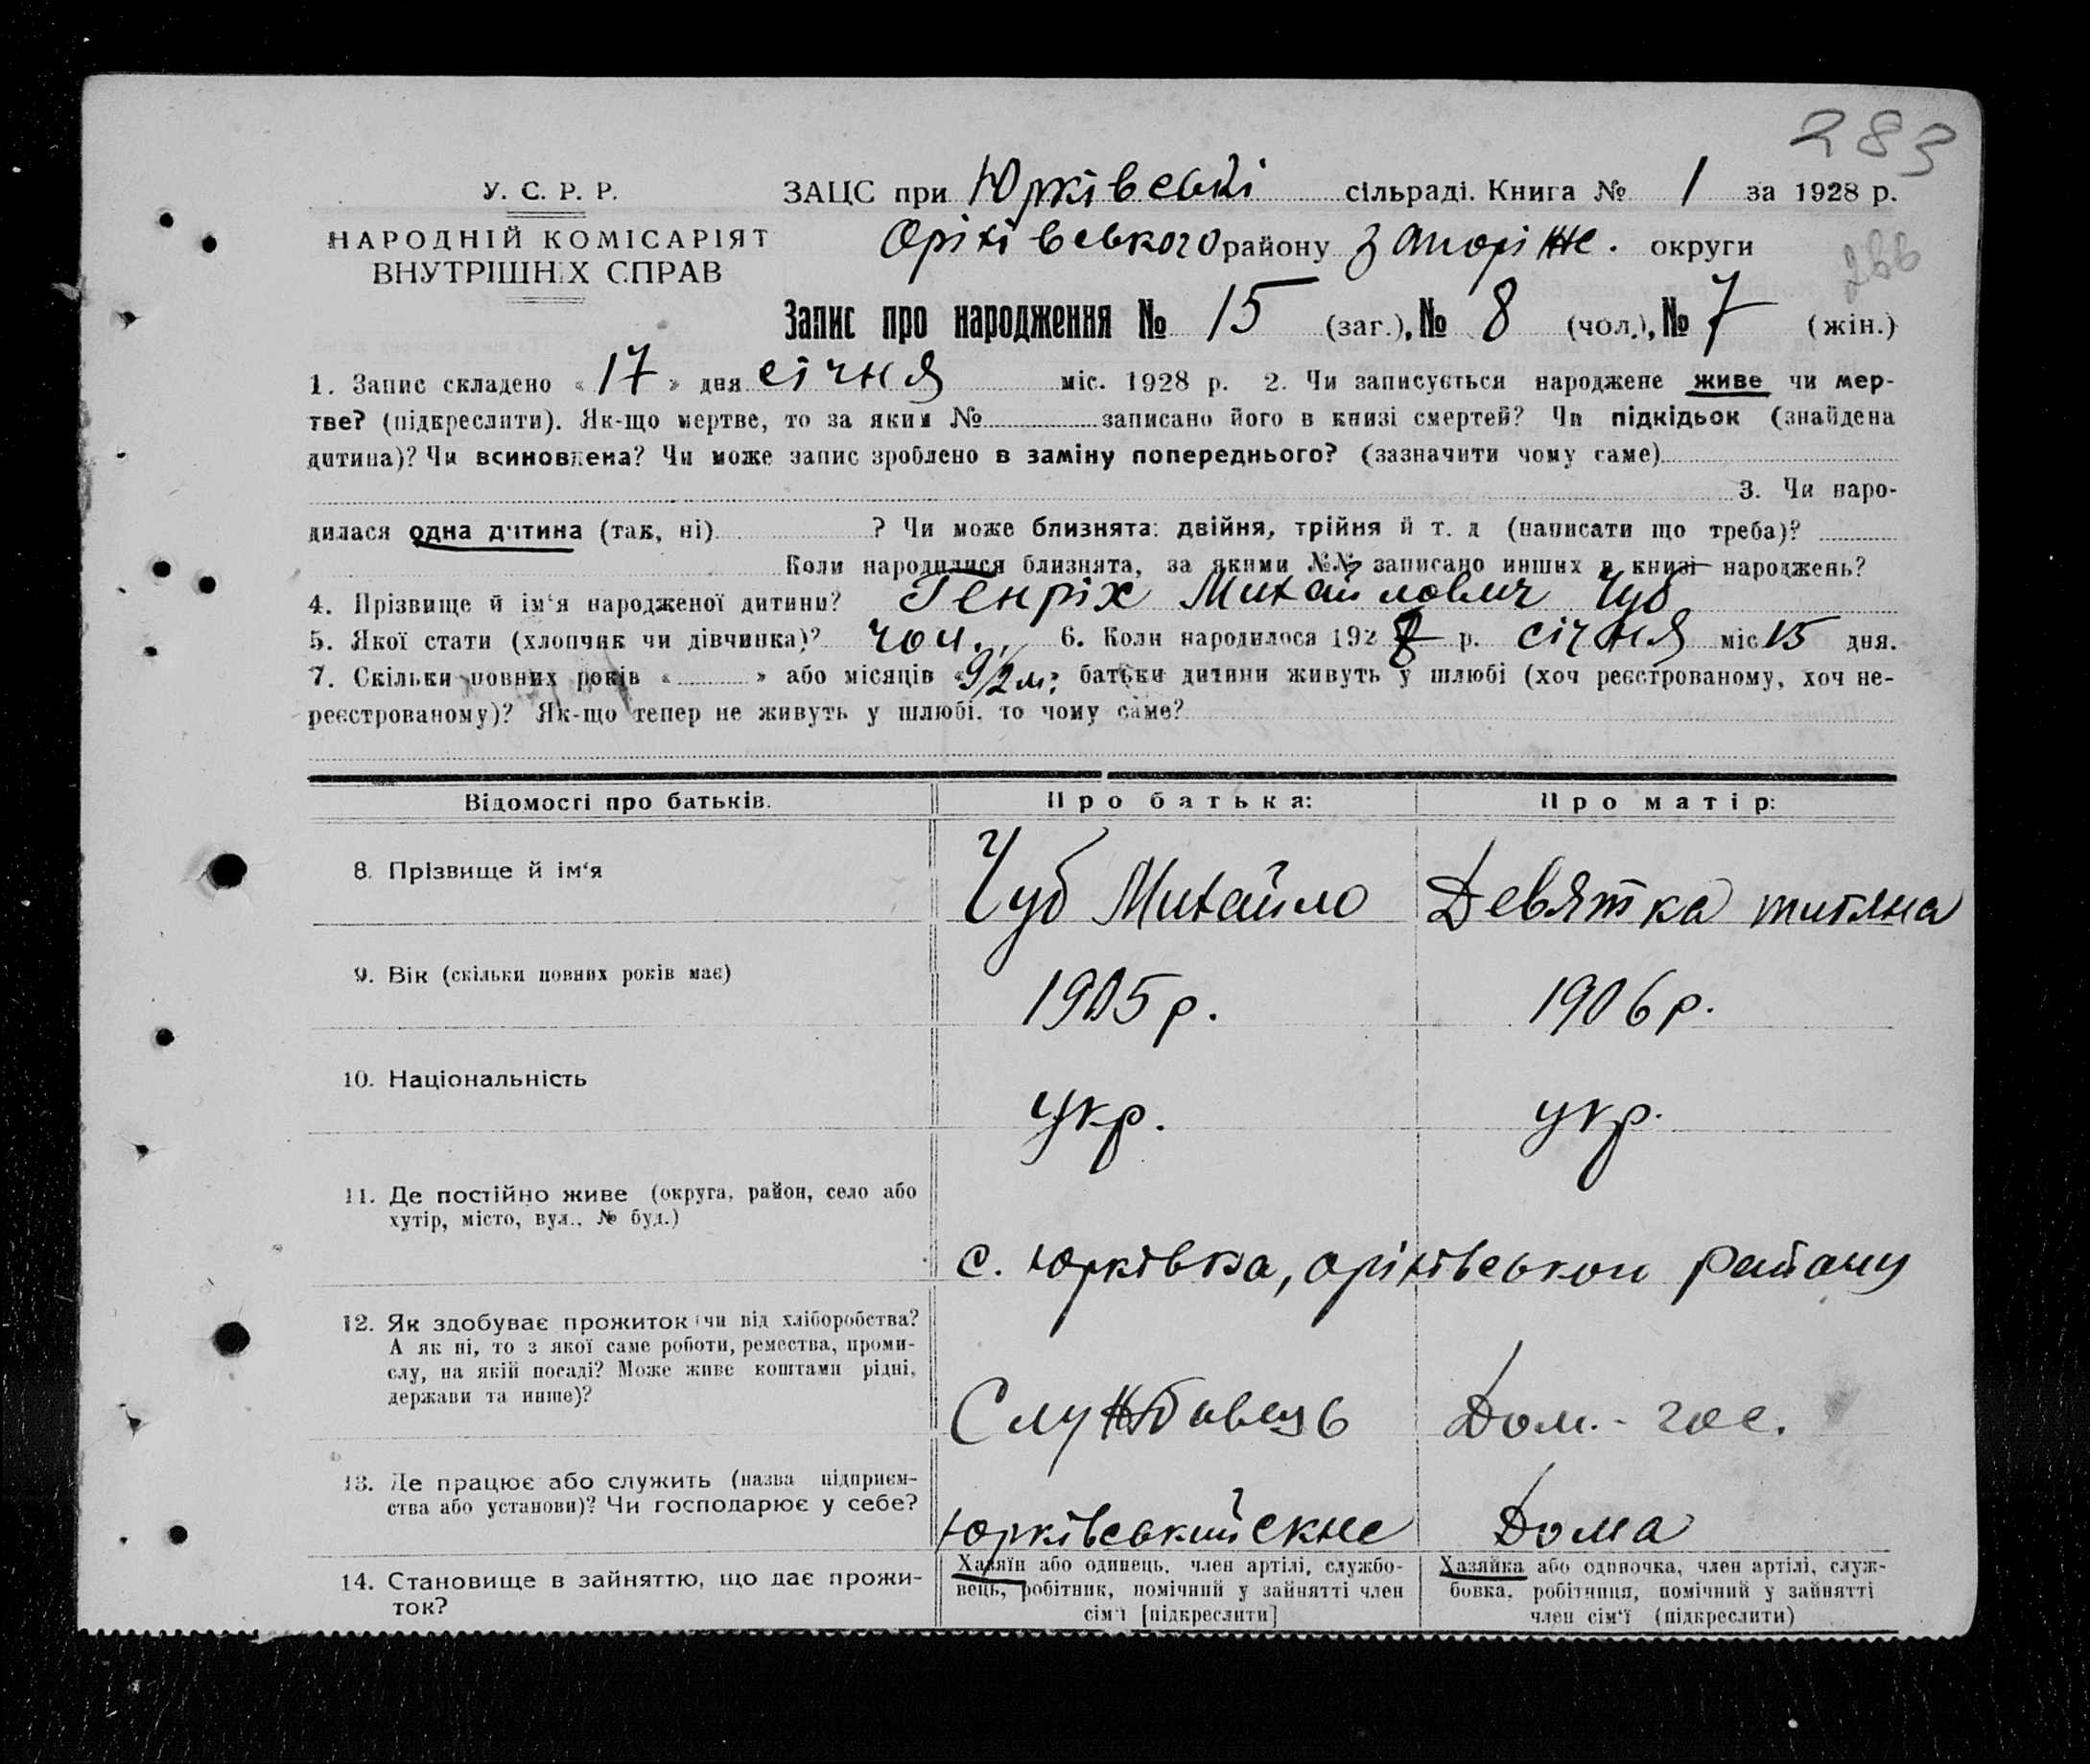 283
У. С. Р. Р.
ЗАЦС при Юрківській сільраді. Книга № 1 за 1928 р.
НАРОДНІЙ КОМІСАРІЯТ
ВНУТРІШНІХ СПРАВ
Оріхівського району Запоріже. округи
266
Запис про народження № 15 (заг.), № 8 (чол.), № 7 (жін.)
1. Запис складено «17» дня січня міс. 1928 р. 2. Чи записується народжене живе чи мер-
тве? (підкреслити). Як-що мертве, то за яким № записано його в книзі смертей? Чи підкідьок (знайдена
дитина)? Чи всиновлена? Чи може запис зроблено в заміну попереднього? (зазначити чому саме)
3. Чи наро-
дилася одна дитина (так, ні) ? Чи може близнята: двійня, трійня й т. д (написати що треба)?
Коли народилися близнята, за якими №№ записано инших в книзі народжень?
4. Прізвище й ім'я народженої дитини? Генріх Михайлович Чуб
5. Якої стати (хлопчик чи дівчинка)? чол. 6. Коли народилося 1928 р. січня міс 15 дня.
7. Скільки повних років « » або місяців «9½ м» батьки дитини живуть у шлюбі (хоч реєстрованому, хоч не-
реєстрованому)? Як-що тепер не живуть у шлюбі, то чому саме?
Відомості про батьків. Про батька: Про матір:
8. Прізвище й ім'я Чуб Михайло Девятка титяна
9. Вік (скільки повних років має) 1905 р. 1906 р.
10. Національність укр. укр.
11. Де постійно живе (округа, район, село або
хутір, місто, вул., № буд.)
с. Юрківка, оріхівського району
12. Як здобуває прожиток (чи від хліборобства?
А як ні, то з якої саме роботи, ремества, проми-
слу, на якій посаді? Може живе коштами рідні,
держави та инше)?
Службовець Дом.-гос.
13. Де працює або служить (назва підприєм-
ства або установи)? Чи господарює у себе?
Юрківський Дома
14. Становище в зайняттю, що дає прожи-
ток?
Хазяїн або одинець, член артілі, службо-
вець, робітник, помічний у зайнятті член
сім'ї [підкреслити]
Хазяйка або одиночка, член артілі, служ-
бовка, робітниця, помічний у зайнятті
член сім'ї (підкреслити)